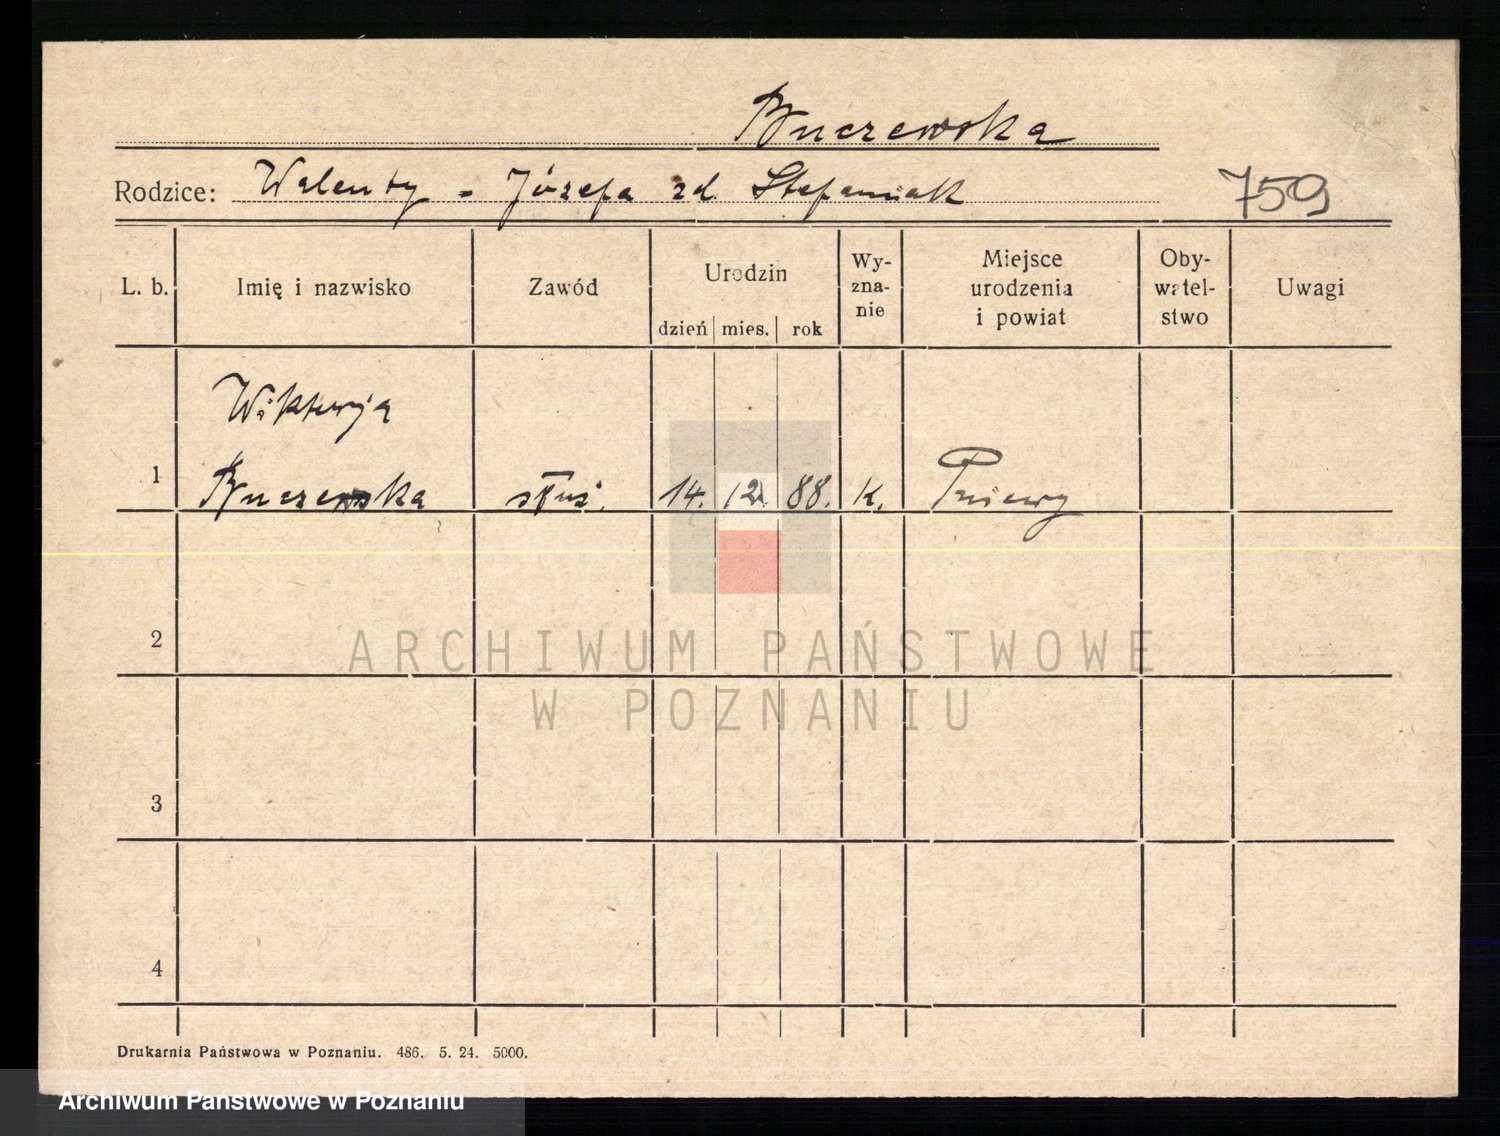 Buczewska
Rodzice: Walenty - Józefa zd. Stefaniak
759
L. b. Imię i nazwisko Zawód Urodzin dzień mies. rok Wy-zna-nie Miejsce urodzenia i powiat Oby-watel-stwo Uwagi
Wiktorja
1 Buczewska służ. 14. 12. 88. k. Pniewy
2
3
4
ARCHIWUM PAŃSTWOWE
W POZNANIU
Drukarnia Państwowa w Poznaniu. 486. 5. 24. 5000.
Archiwum Państwowe w Poznaniu